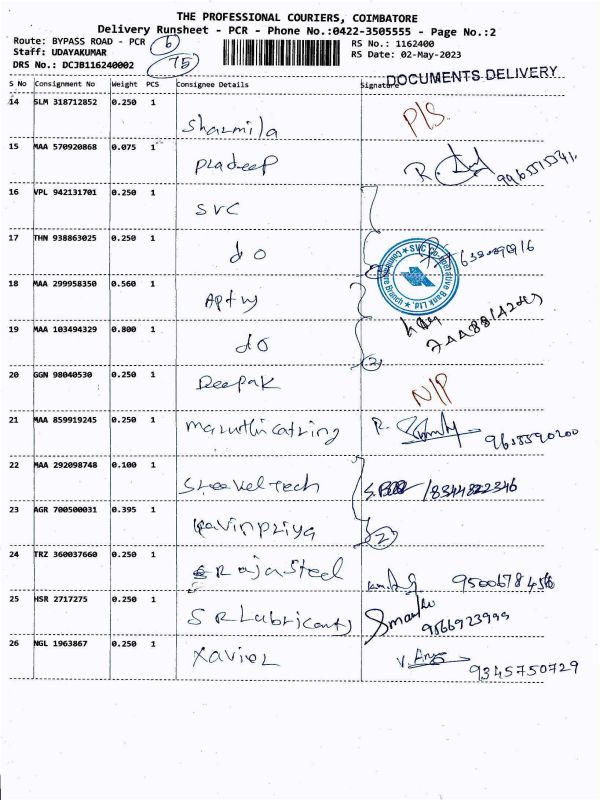 THE PROFESSIONAL COURIERS, COIMBATORE
Delivery Runsheet - PCR - Phone No.:0422-3505555 - Page No.:2
Route: BYPASS ROAD - PCR 6 RS No.: 1162400
Staff: UDAYAKUMAR RS Date: 02-May-2023
DRS No.: DCJB116240002 75
DOCUMENTS DELIVERY
S No Consignment No Weight PCS Consignee Details Signature
14 SLM 318712852 0.250 1
Sharmila P/S.
15 MAA 570920868 0.075 1
Pradeep R.
16 VPL 942131701 0.250 1
SVC
17 THN 938863025 0.250 1
do
SVC Co-operative Bank Ltd. Coimbatore Branch
18 MAA 299958350 0.560 1
19 MAA 103494329 0.800 1
do 2
20 GGN 98040530 0.250 1
Deepak N/P
21 MAA 859919245 0.250 1
R.
22 MAA 292098748 0.100 1
8344822346
23 AGR 700500031 0.395 1
Kavinpriya 2
24 TRZ 360037660 0.250 1
Raja Steel
25 HSR 2717275 0.250 1
S R Lubricants 9566923999
26 NGL 1963867 0.250 1
Xavier 9345750729